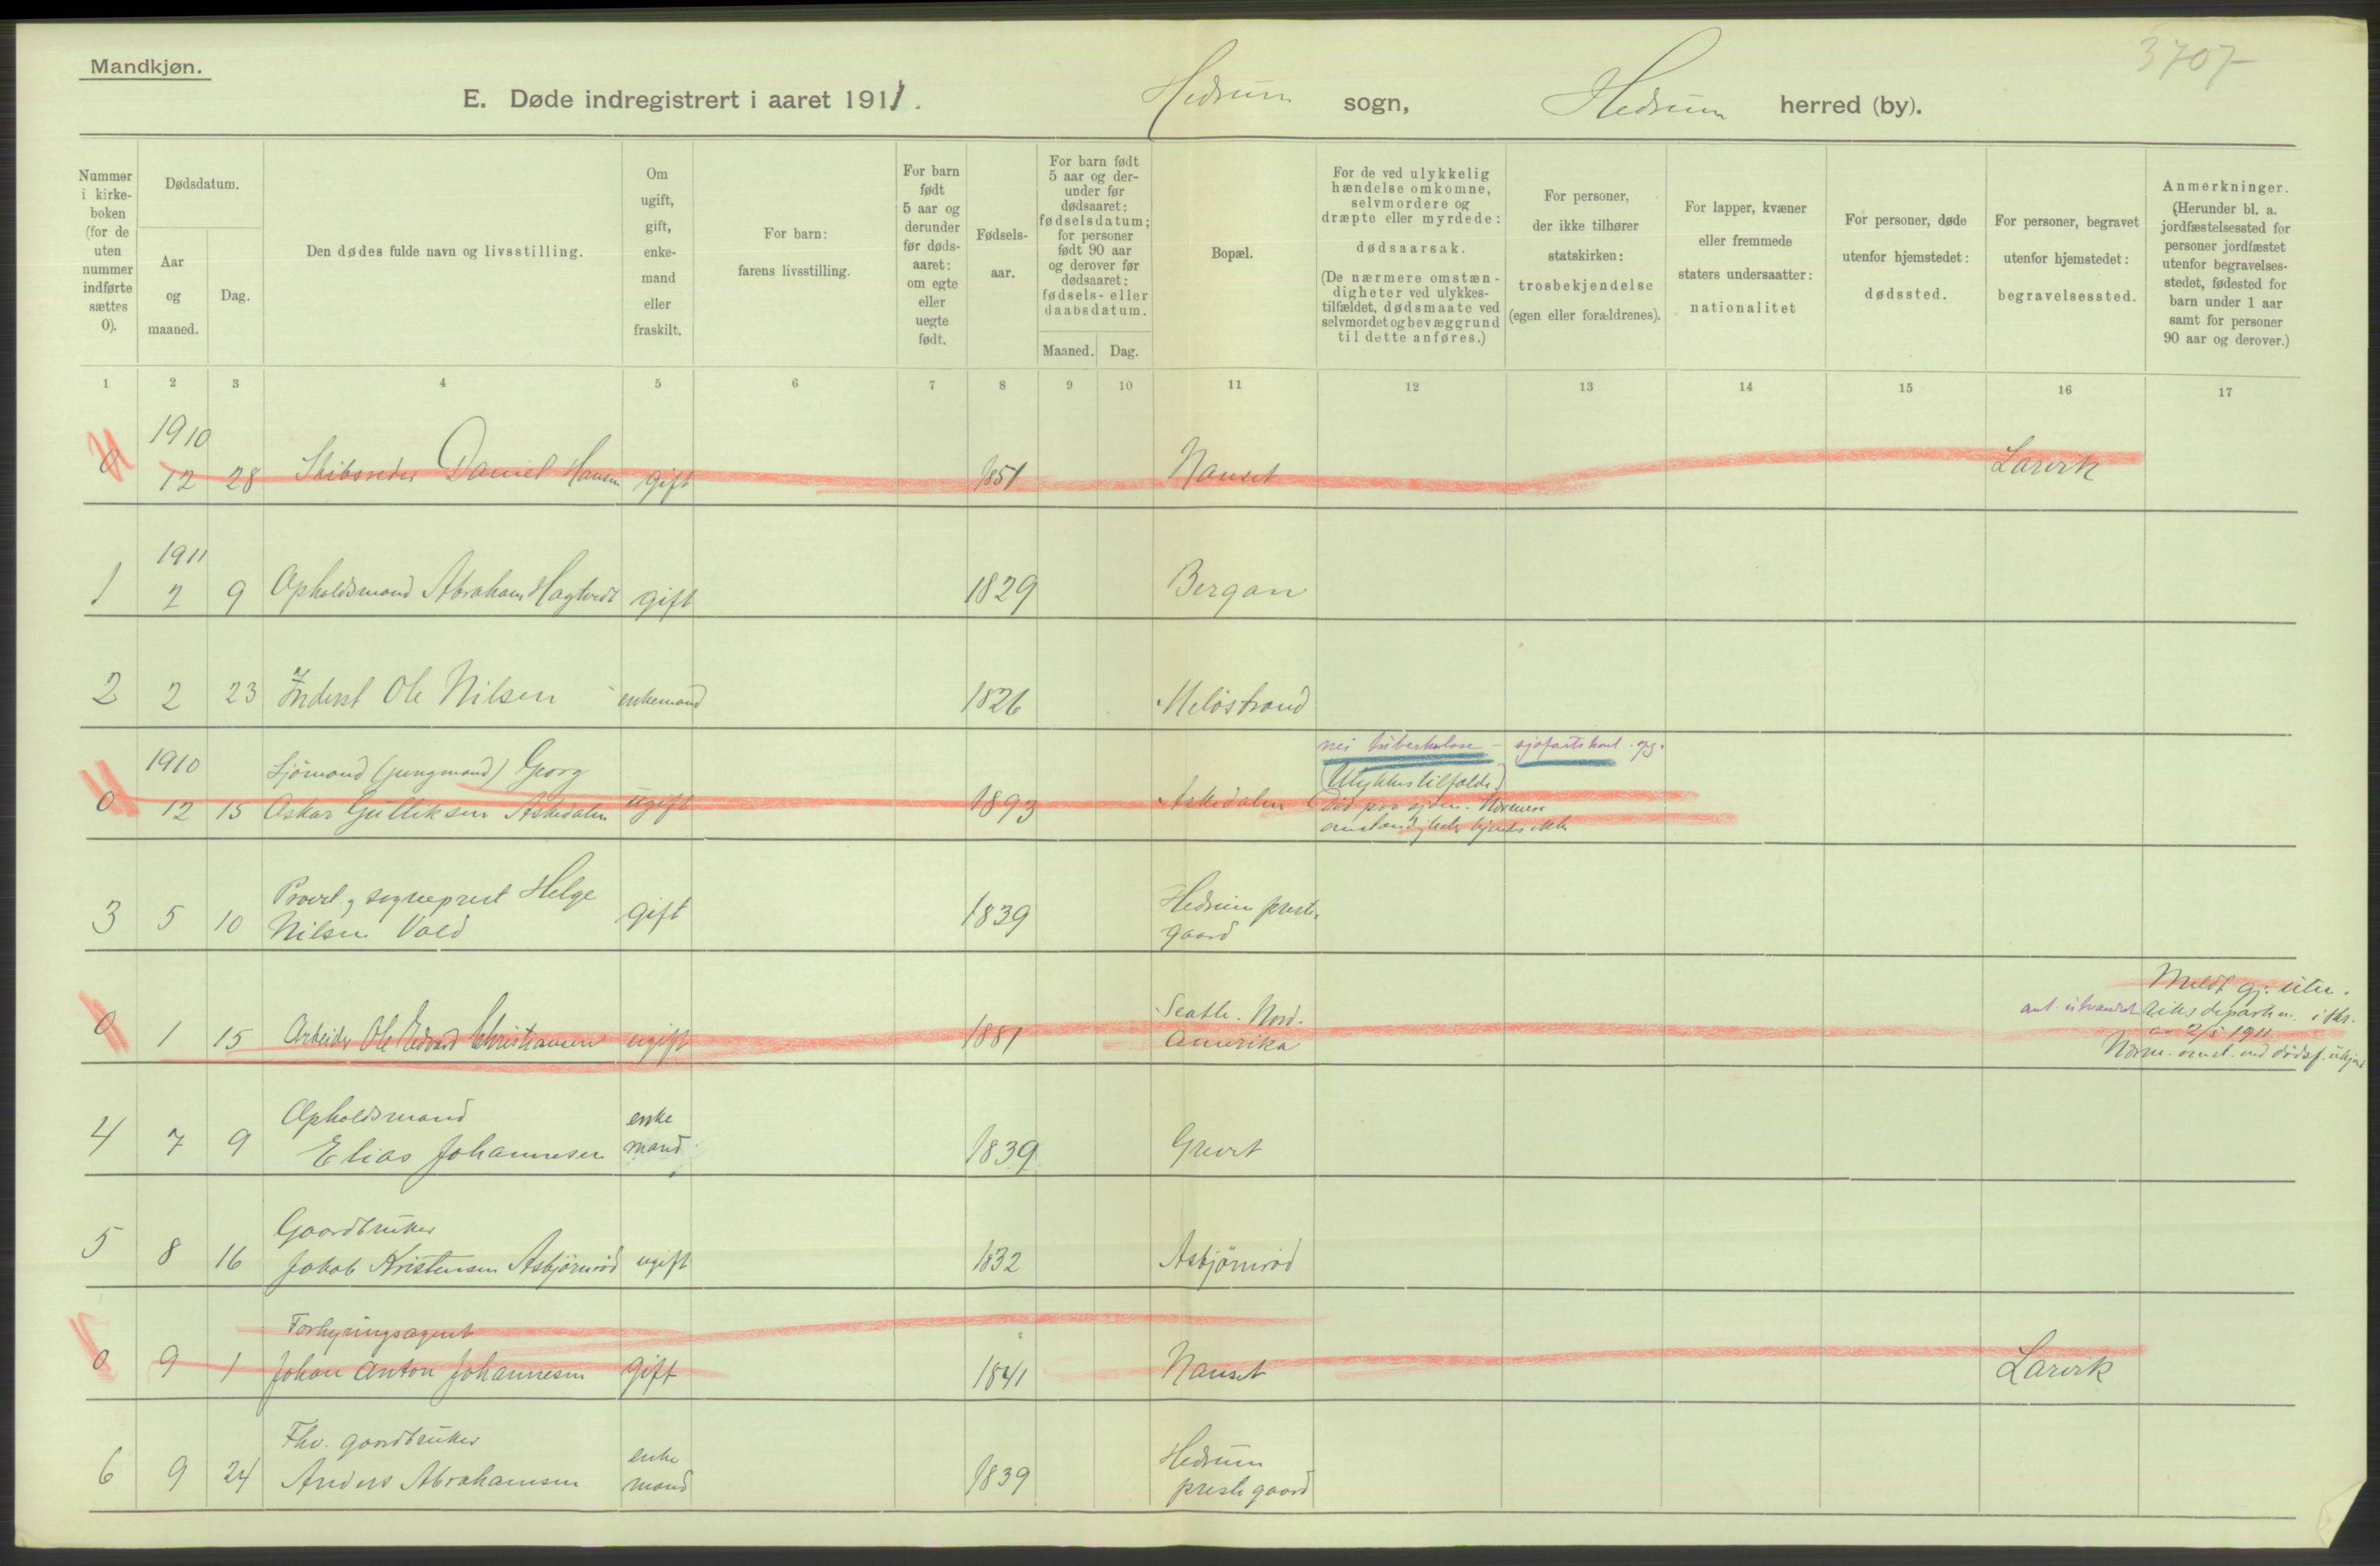 Mandkjøn.
3707
E. Døde indregistrert i aaret 1911.
Hedrum sogn, Hedrum herred (by).
Nummer
i kirke-
boken
(for de
uten
nummer
indførte
sættes
0).
Dødsdatum.
Aar
og
maaned.
Dag.
Den dødes fulde navn og livsstilling.
Om
ugift,
gift,
enke-
mand
eller
fraskilt.
For barn:
farens livsstilling.
For barn
født
5 aar og
derunder
før døds-
aaret:
om egte
eller
uegte
født.
Fødsels-
aar.
For barn født
5 aar og der-
under før
dødsaaret:
fødselsdatum;
for personer
født 90 aar
og derover før
dødsaaret:
fødsels- eller
daabsdatum.
Maaned. Dag.
Bopæl.
For de ved ulykkelig
hændelse omkomne,
selvmordere og
dræpte eller myrdede:
dødsaarsak.
(De nærmere omstæn-
digheter ved ulykkes-
tilfældet, dødsmaate ved
selvmordet og bevæggrund
til dette anføres.)
For personer,
der ikke tilhører
statskirken:
trosbekjendelse
(egen eller forældrenes).
For lapper, kvæner
eller fremmede
staters undersaatter:
nationalitet
For personer, døde
utenfor hjemstedet:
dødssted.
For personer, begravet
utenfor hjemstedet:
begravelsessted.
Anmerkninger.
(Herunder bl. a.
jordfæstelsessted for
personer jordfæstet
utenfor begravelses-
stedet, fødested for
barn under 1 aar
samt for personer
90 aar og derover.)
1 2 3 4 5 6 7 8 9 10 11 12 13 14 15 16 17
1910
0 12 28 Skibsreder Daniel Hansen gift 1851 Nanset Larvik
1911
1 2 9 Opholdsmand Abraham Hagtvedt gift 1829 Bergan
2 2 23 Inderst Ole Nilsen enkemand 1826 Meløstrand
nei tuberkulose - sjøfartskont. opg.
1910 Sjømand (jungmand) Georg (Ulykkestilfælde.)
0 12 15 Oskar Gulliksen Askedalen ugift 1893 Askedalen Død paa sjøen. Nærmere
omstændigheter kjendes ikke
Provst og sogneprest Helge
3 5 10 Nilsen Vold gift 1839 Hedrum preste-
gaard
Meldt gj. uten-
Seattle. Nord- ant. utvandret riksdepartem. i skr.
0 1 15 Arbeider Ole Edvard Christiansen ugift 1881 Amerika av 2/5 1911.
Nærm. omst. ved dødsf. ukjend
Opholdsmand enke
4 7 9 Elias Johannesen mand 1839 Grevet
Gaardbruker
5 8 16 Jakob Kristensen Asbjørnrød ugift 1832 Asbjørnrød
Forhyringsagent
0 9 1 Johan Anton Johannesen gift 1841 Nanset Larvik
Fhv. gaardbruker enke Hedrum
6 9 24 Anders Abrahamsen mand 1839 prestegaard